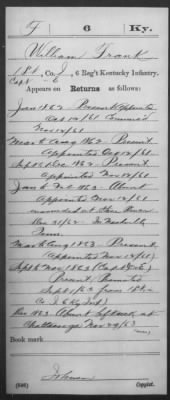 T 6 Ky.
William Trank
1 Lt., Co. I, 6 Reg't Kentucky Infantry.
Capt " E
Appears on Returns as follows:
Jan 1862 Present Appointed
Oct 12/61
Nov 12/61
Mar to Aug 1862. Present
Appointed Nov 12/61
Sept to Dec 1862. Present
Appointed Nov 12/61
Jan to 1863. Absent
Appointed Nov 12/61
wounded at Stone River
Dec 31/62 In Nashville
Tenn.
Mar to Aug 1863. Present
Appointed Nov 12/61
Sept to Nov 1863 (Capt Co E)
Present, Promoted
from 1st Lt
Co I 6 Ky Inf
Dec 1863 Absent Left sick at
Chattanooga Nov 29/63
Book mark:
(546) Copyist.